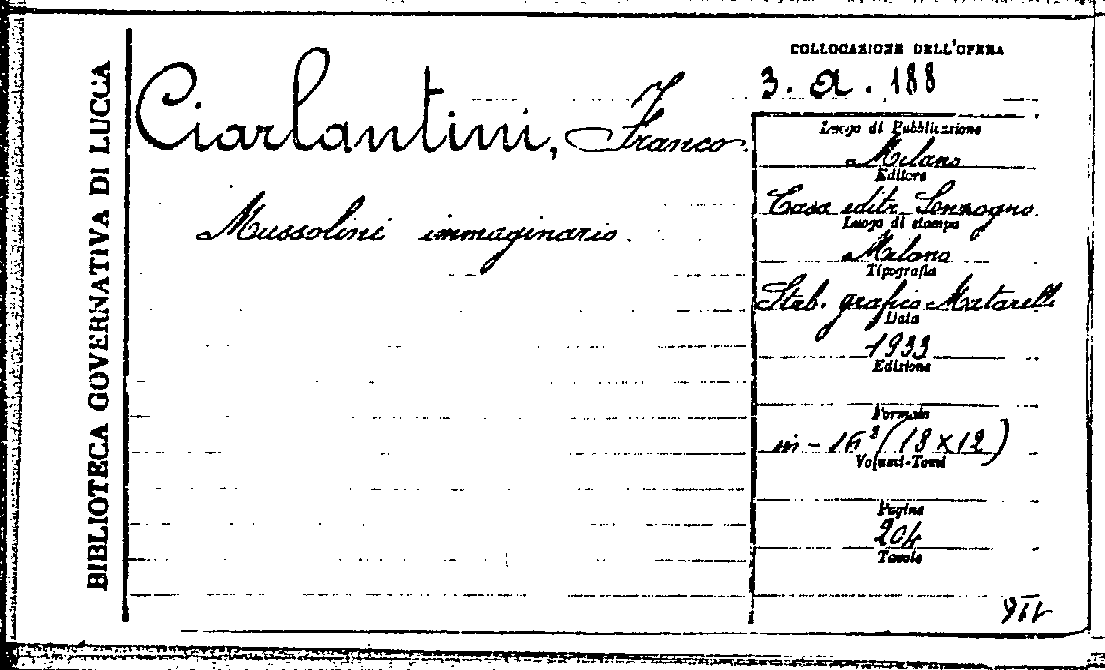 BIBLIOTECA GOVERNATIVA DI LUCCA
COLLOCAZIONE DELL'OPERA
3. a. 188
Ciarlantini, Franco
Mussolini immaginario.
Luogo di Pubblicazione
Milano
Editore
Casa editr. Sonzogno
Luogo di stampa
Milano
Tipografia
Stab. grafico Matarelli
Data
1933
Edizione
Formato
in-16° (18 x 12)
Volumi-Tomi
Pagine
204
Tavole